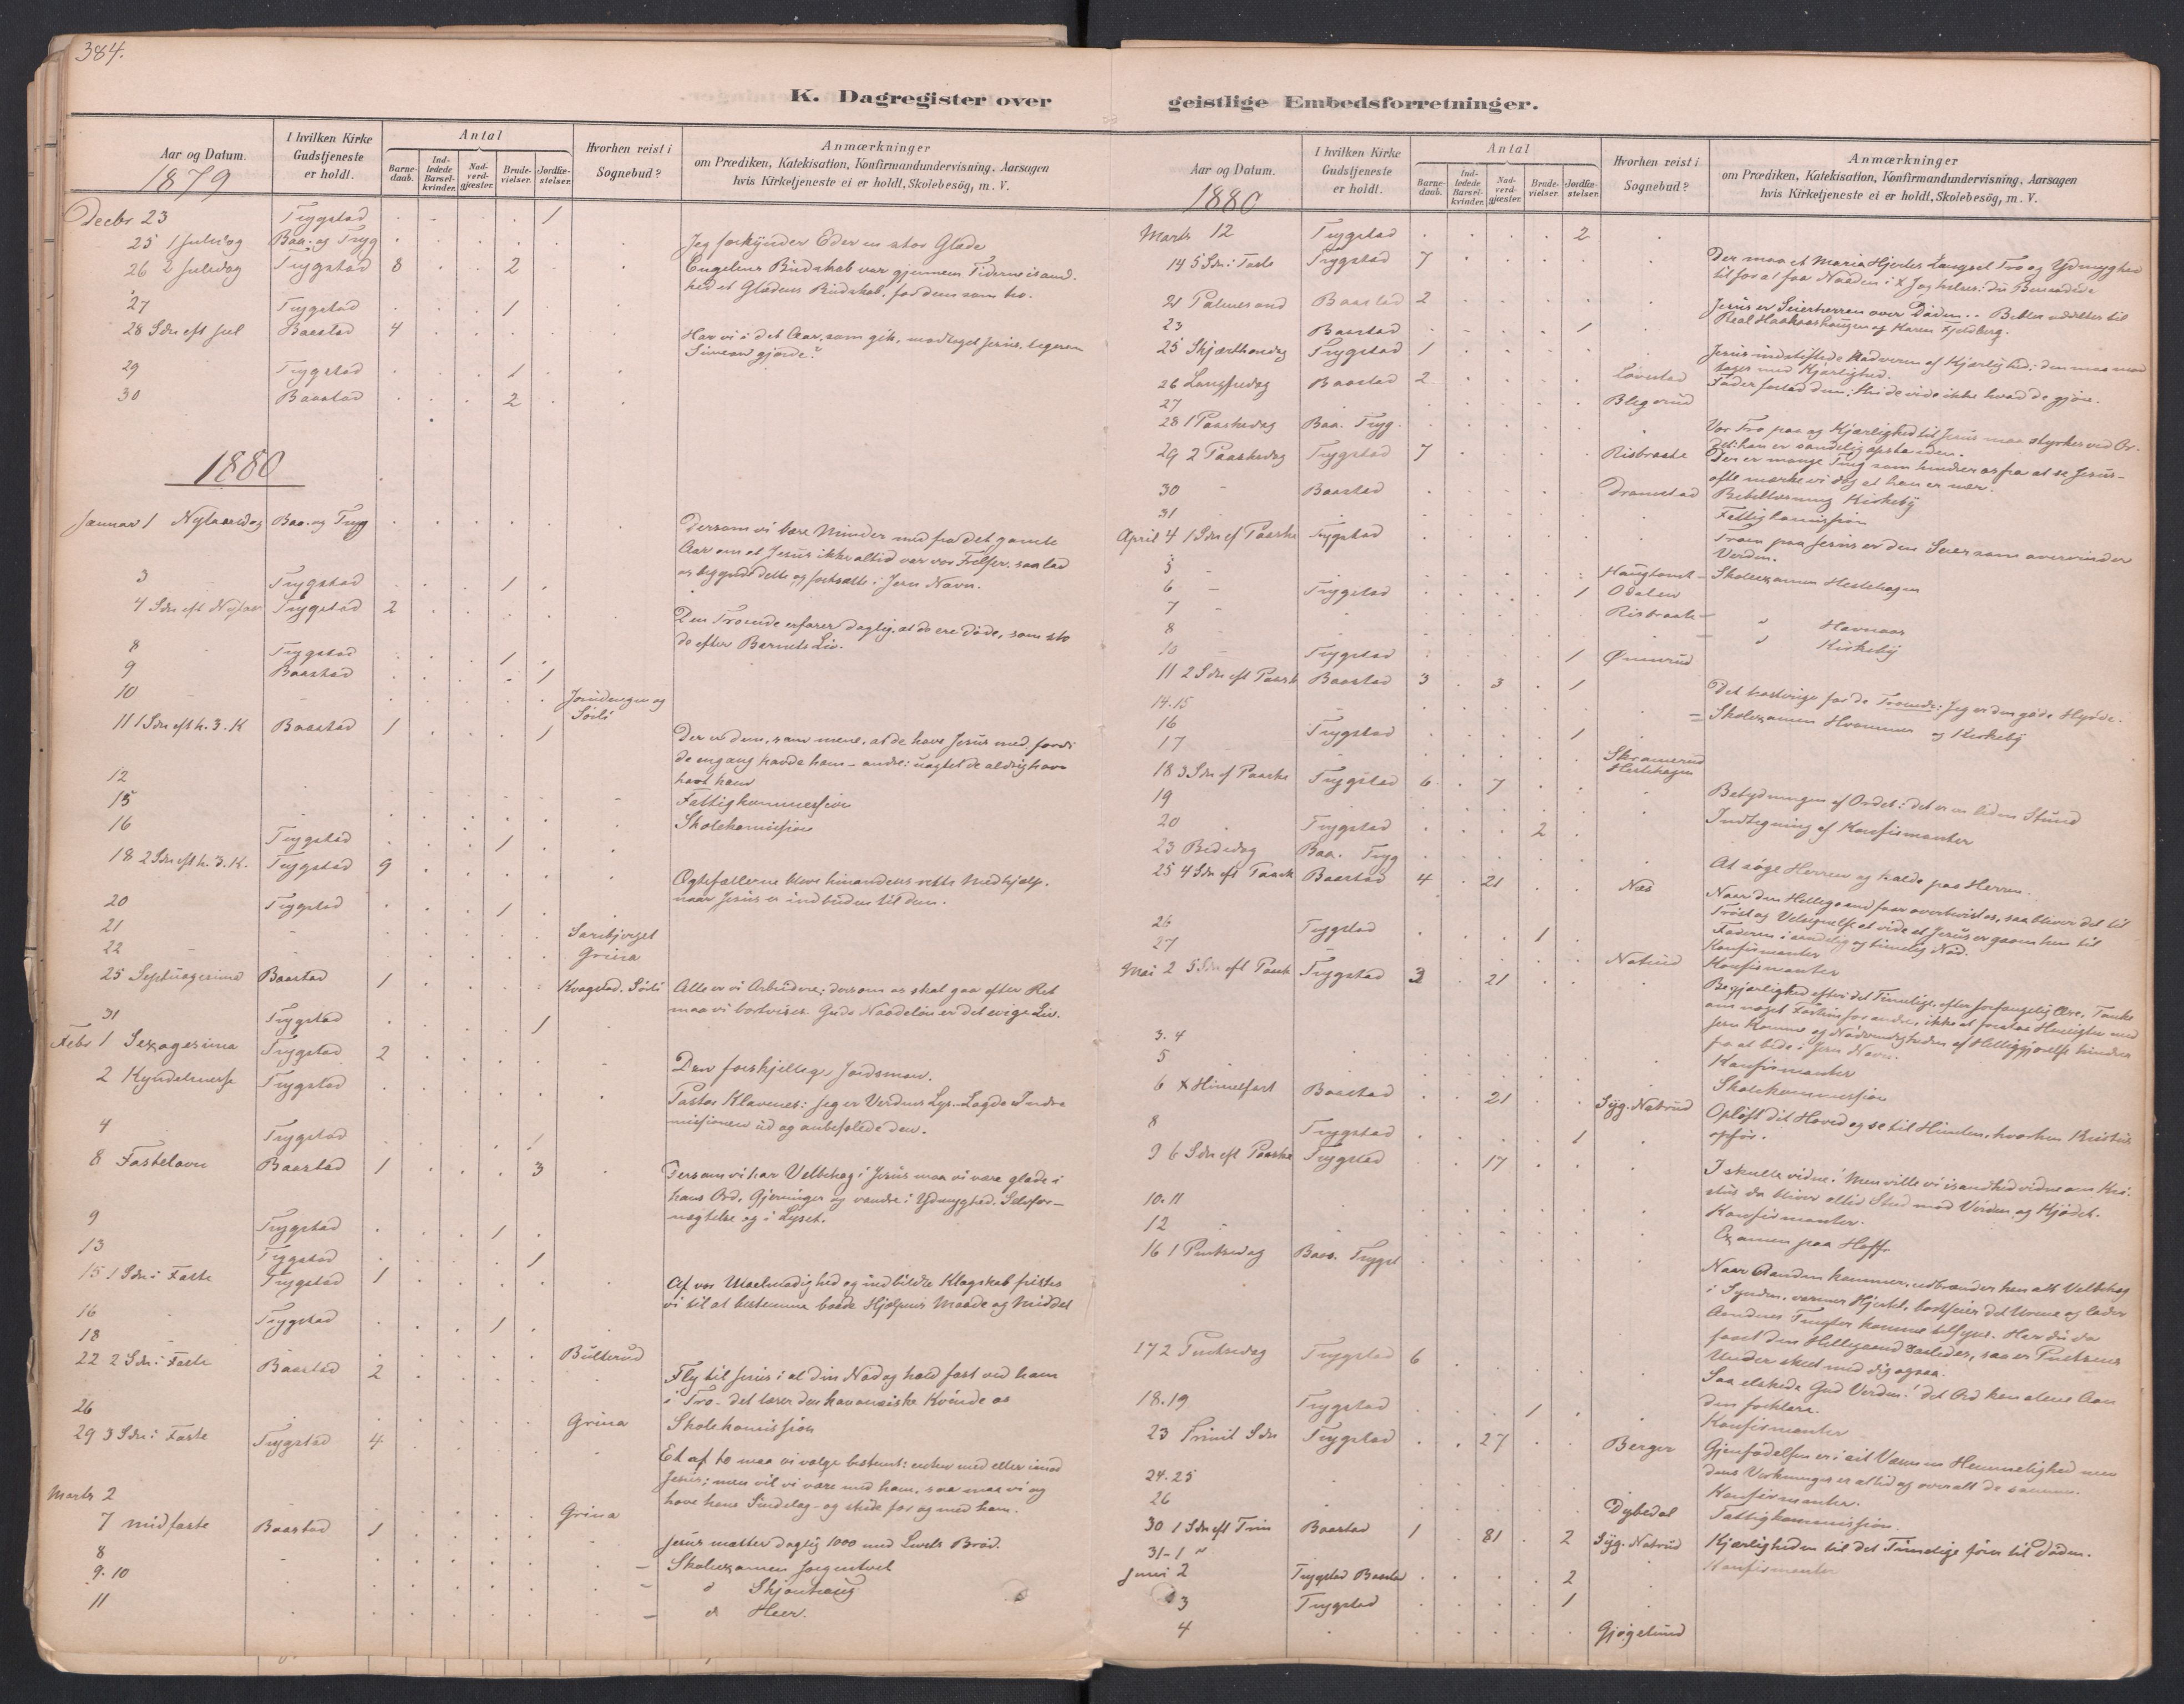 384.
K. Dagregister over
Aar og Datum.
1879
I hvilken Kirke Gudstjeneste er holdt.
Antal
Barnedaab.
Indledede Barselkvinder.
Nadverdgjæster.
Brudevielser.
Jordfæstelser.
Hvorhen reist i Sognebud?
Anmærkninger
om Prædiken, Katekisation, Konfirmandundervisning, Aarsagen
hvis Kirketjeneste ei er holdt, Skolebesög, m. V.
Decbr 23 Trygstad 1
25 1 Juledag Baa. og Tryg Jeg forkynder Eder en stor Glæde
26 2 Juledag Trygstad 8 2 Engelens Budskab var gjennem Tiderne i sand-
hed et Glædens Budskab, for dem som tro.
27 Trygstad 1
28 Sdn eft Jul Baastad 4 Har vi i det Aar, som gik, modtaget Jesus, ligesom
Simeon gjorde?
29 Trygstad 1
30 Baastad 2
1880
Januar 1 Nytaarsdag Baa. og Tryg Dersom vi bære Minder med fra det gamle
Aar om at Jesus ikke altid var vor Frelser, saa lad
os begynde dette og fortsætte i Jesu Navn.
3 Trygstad 1
4 Sdn eft Nytaar Trygstad 2 Den Troende erfarer daglig, at de ere døde, som sto
de efter Barnets Liv.
8 Trygstad 1
9 Baastad 1
10 og
11 1 Sdn eft h. 3. K Baastad 1 1 Der er dem, som mene, at de have Jesus med fordi
de engang havde ham - andre: uagtet de aldrig have
havt ham
12 Fattigkommission
15 Skolekomission
16 Trygstad 1
18 2 Sdn eft h. 3. K. Trygstad 9 Ægtefællerne blive hinandens rette Medhjælp,
naar Jesus er indbuden til dem.
20 Trygstad 1
21
22 Grina
25 Septuagesima Baastad 1 Kragstad. Alle er vi Arbeidere; dersom os skal gaa efter Ret
maa vi bortvises. Guds Naadeløn er det evige Liv.
31 Trygstad 1
Febr 1 Sexagesima Trygstad 2 Den forskjellige Jordsmon.
2 Kyndelmesse Trygstad Pastor Klavenes: Jeg er Verdens Lys. Lagde Indre
missionen ud og anbefalede den.
4 Trygstad 1
8 Fastelavn Baastad 1 3 Dersom vi har Velbehag i Jesus maa vi være glade i
hans Ord, Gjerninger og vandre i Ydmyghed. Selvfor-
nægtelse og i Lyset.
9 Trygstad 1
13 Trygstad 1
15 1 Sdn i Faste Trygstad 1 Af vor Utaalmodighed og indbildte Klogskab fristes
vi til at bestemme baade Hjælpens Maade og Middel
16 Trygstad 1
18 Bulterud
22 2 Sdn i Faste Baastad 2 Fly til Jesus i al din Nød og hold fast ved ham
i Tro. det lærer den kananæiske Kvinde os
26 Grina Skolekomission
29 3 Sdn i Faste Trygstad 4 Et af to maa vi vælge bestemt: enten med eller imod
Jesus; men vil vi være med ham, saa maa vi og
have hans Sindelag og stride for og med ham.
Marts 2 Grina
7 Midfaste Baastad 1 Jesus mætter daglig 1000 med Livets Brød.
8 Skoleexamen
9.10 d Skjønhaug
11 d Heer.
geistlige Embedsforretninger.
Aar og Datum.
1880
I hvilken Kirke Gudstjeneste er holdt.
Antal
Barnedaab.
Indledede Barselkvinder.
Nadverdgjæster.
Brudevielser.
Jordfæstelser.
Hvorhen reist i Sognebud?
Anmærkninger
om Prædiken, Katekisation, Konfirmandundervisning, Aarsagen
hvis Kirketjeneste ei er holdt, Skolebesög, m. V.
Marts 12 Trygstad 2
14 5 Sdn i Faste Trygstad 7 Der maa et Maria Hjertes Længsel Tro og Ydmyghed
til for at faa Naaden i
21 Palmesønd Baastad 2 Jesus er Seierherren over Døden. Bibler uddeltes til
og Karen Fjeldberg.
23 Baastad 1
25 Skjærthorsdag Trygstad 1 Jesus indstiftede Nadveren af Kjærlighed; den maa mod
tages med Kjærlighed.
26 Langfredag Baastad 2 Løvestad Fader forlad dem, thi de vide ikke hvad de gjøre.
27 Blegerud
28 1 Paaskedag Baa. Tryg. Vor Tro paa og Kjærlighed til Jesus maa styrkes ved Or-
det: han er sandelig opstanden.
29 2 Paaskedag Trygstad 7 Risbraate Der er mange Ting som hindrer os fra at se Jesus -
ofte mærke vi dog at han er nær.
30 Baastad Dramstad Bibellæsning Kirkeby
31 Fattigkomission
April 4 1 Sdn ef Paaske Trygstad Troen paa Jesus er den Seier som overvinder
Verden.
5 Skoleexamen Hestehagen
6 Trygstad 1 Odalen
7 Risbraate " Havnaas
8 " Kirkeby
10 Trygstad 1 Ønnerud
11 2 Sdn eft Paask Baastad 3 3 1 Det for de Troende: Jeg er den gode Hyrde.
14.15 Skoleexamen og Kirkeby
16 Trygstad 1
17 Skramerud
Hestehagen
18 3 Sdn ef Paaske Trygstad 6 7 Betydningen af Ordet: det er en liden Stund
19 Indtegning af Konfirmanter
20 Trygstad 2
23 Bededag Baa. Tryg At søge Herren og kalde paa Herren.
25 4 Sdn eft Paask Baastad 4 21 Næs Naar den Helligaand faar overbevist os, saa bliver det til
Trøst og Velsignelse at vide at Jesus er gaaen hen til
Faderen i aandelig og timelig Nød.
26 Trygstad 1 Konfirmanter
27 Natrud Konfirmanter
Mai 2 5 Sdn eft Paask Trygstad 3 21 Begjærlighed efter det Timelige, efter forfængelig Ære, Tanke
om noget Fortrin for andre, ikke at forstaa Hensigten med
Jesu Komme og Nødvendigheden af Helliggjørelse hindrer
fra at bede i Jesu Navn.
3.4 Konfirmanter
5 Skolekommission
6 X Himmelfart Baastad 21 Syg. Natrud Opløft dit Hoved og se til Himlen, hvorhen Kristus
opfor.
8 Trygstad 1
9 6 Sdn eft Paaske Trygstad 17 I skulle vidne! Men ville vi i sandhed vidne om Kri-
stus da bliver altid Strid mod Verden og Kjødet.
10.11 Konfirmanter.
12 Examen paa Hoff.
16 1 Pintsedag Baas. Trygst Naar Aanden kommer, udbrænder han alt Velbehag
i Synden, varmer Hjertet, bortfeier det Urene og lader
Aandens Frugter komme tilsyne. Har du da
faaet den Helligaand saaledes, saa er Pintsens
Under skeet med dig ogsaa.
17 2 Pintsedag Trygstad 6 Saa elskede Gud Verden! det Ord kan alene Aan
den forklare.
18.19 Trygstad 1 Konfirmanter
23 Trinit Sdn Trygstad 27 Berger Gjenfødelsen er i sit Væsen en Hemmelighed men
dens Virkninger er altid og overalt de samme.
24.25 Konfirmanter.
26 Dybedal Fattigkommission.
30 1 Sdn eft Trin Baastad 1 81 2 Syg. Natrud Kjærligheden til det Timelige fører til Døden.
31-1 " Konfirmanter
Juni 2 Trygstad Baasta 2
3 Trygstad 1
4 Gjøgelund